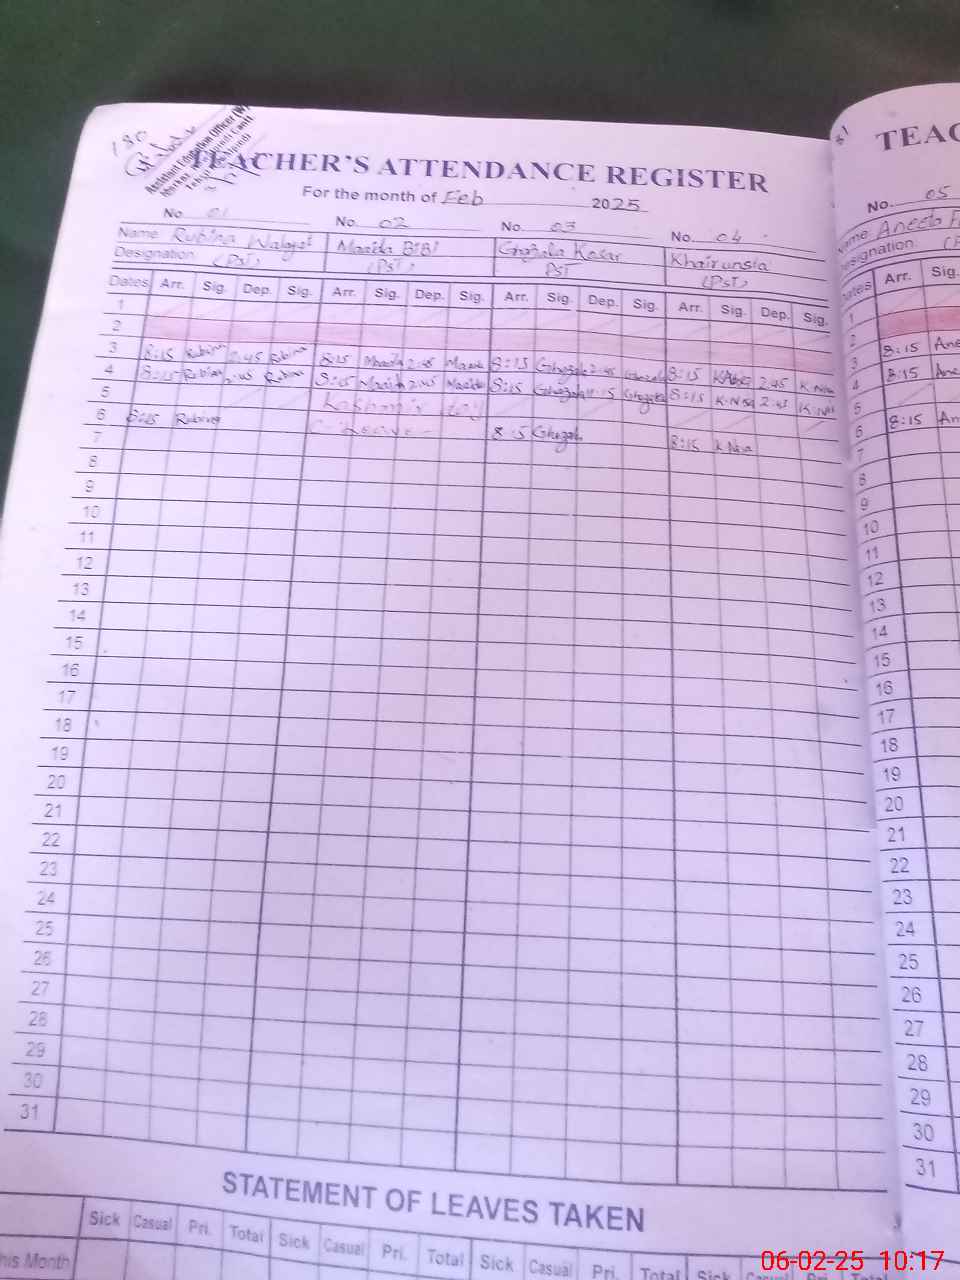 180
Assistant Education Officer (W)
TEACHER'S ATTENDANCE REGISTER
For the month of Feb 2025
No. 01 No. 02 No. 03 No. 04
Name Rubina Walayat Maaida BiBi Ghazala Kosar Khairunsia
Designation (PST) (PST) PST (PST)
Dates Arr. Sig. Dep. Sig. Arr. Sig. Dep. Sig. Arr. Sig. Dep. Sig. Arr. Sig. Dep. Sig.
1
2
3 8:15 Rubina 2:45 Rubina 8:15 Maaida 2:45 Maaida 8:15 Ghazala 2:45 Ghazala 8:15 2:45 K.Nisa
4 8:15 Rubina 2:45 Rubina 8:15 Maaida 2:45 Maaida 8:15 Ghazala Ghazala 8:15 K.Nisa 2:45 K.Nisa
5 Kashmir Day
6 8:15 Rubina C-Leave 8:15 Ghazala 8:15 K.Nisa
7
8
9
10
11
12
13
14
15
16
17
18
19
20
21
22
23
24
25
26
27
28
29
30
31
STATEMENT OF LEAVES TAKEN
Sick Casual Pri. Total Sick Casual Pri. Total Sick Casual Pri. Total Sick Casual
his Month
81
TEAC
No. 05
ame Aneela F
esignation (P
Arr. Sig.
1
2
3 8:15 Ane
4 8:15 Ane
5
6 8:15 An
7
8
9
10
11
12
13
14
15
16
17
18
19
20
21
22
23
24
25
26
27
28
29
30
31
06-02-25 10:17